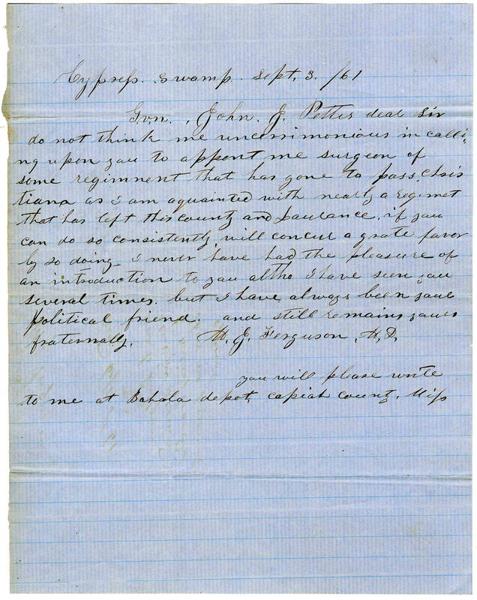 Cypress swamp Sept, 3. /61
Gvn., John. J. Pettus dear Sir
do not think me uncerimonious in calli,
ng upon you to appoint me surgeon of
some regimnent that has gone to pass, Chris
tiana as I am aquainted with nearly a regimet
that has left this county and Laurance, if you
can do so consistently, will concur a grate favor
by so doing. I never have had the pleasure of
an introduction to you altho I have seen you
several times. but I have always been your
political friend. and still remains yours
fraternally, J. Ferguson, M,D,
you will please write
to me at Bahala depot, copiah county, Miss